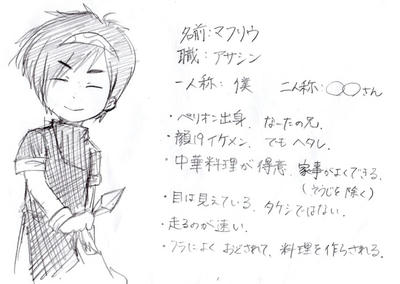 名前:マフリウ
職:アサシン
一人称:僕 二人称:○○さん
・ペリオン出身、なーたの兄。
・顔はイケメン、でもヘタレ。
・中華料理が得意、家事がよくできる。
(そうじを除く)
・目は見えている、タケシではない。
・走るのが速い。
・フラによくおどされて、料理を作らされる。